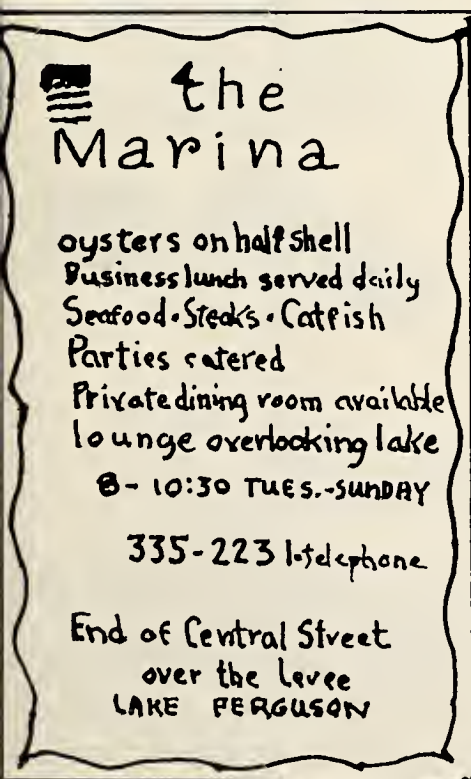 the
Marina
oysters on half shell
Business lunch served daily
Seafood • Steaks • Catfish
Parties catered
Private dining room available
lounge overlooking lake
8 - 10:30 TUES.-SUNDAY
335-2231-telephone
End of Central Street
over the levee
LAKE FERGUSON